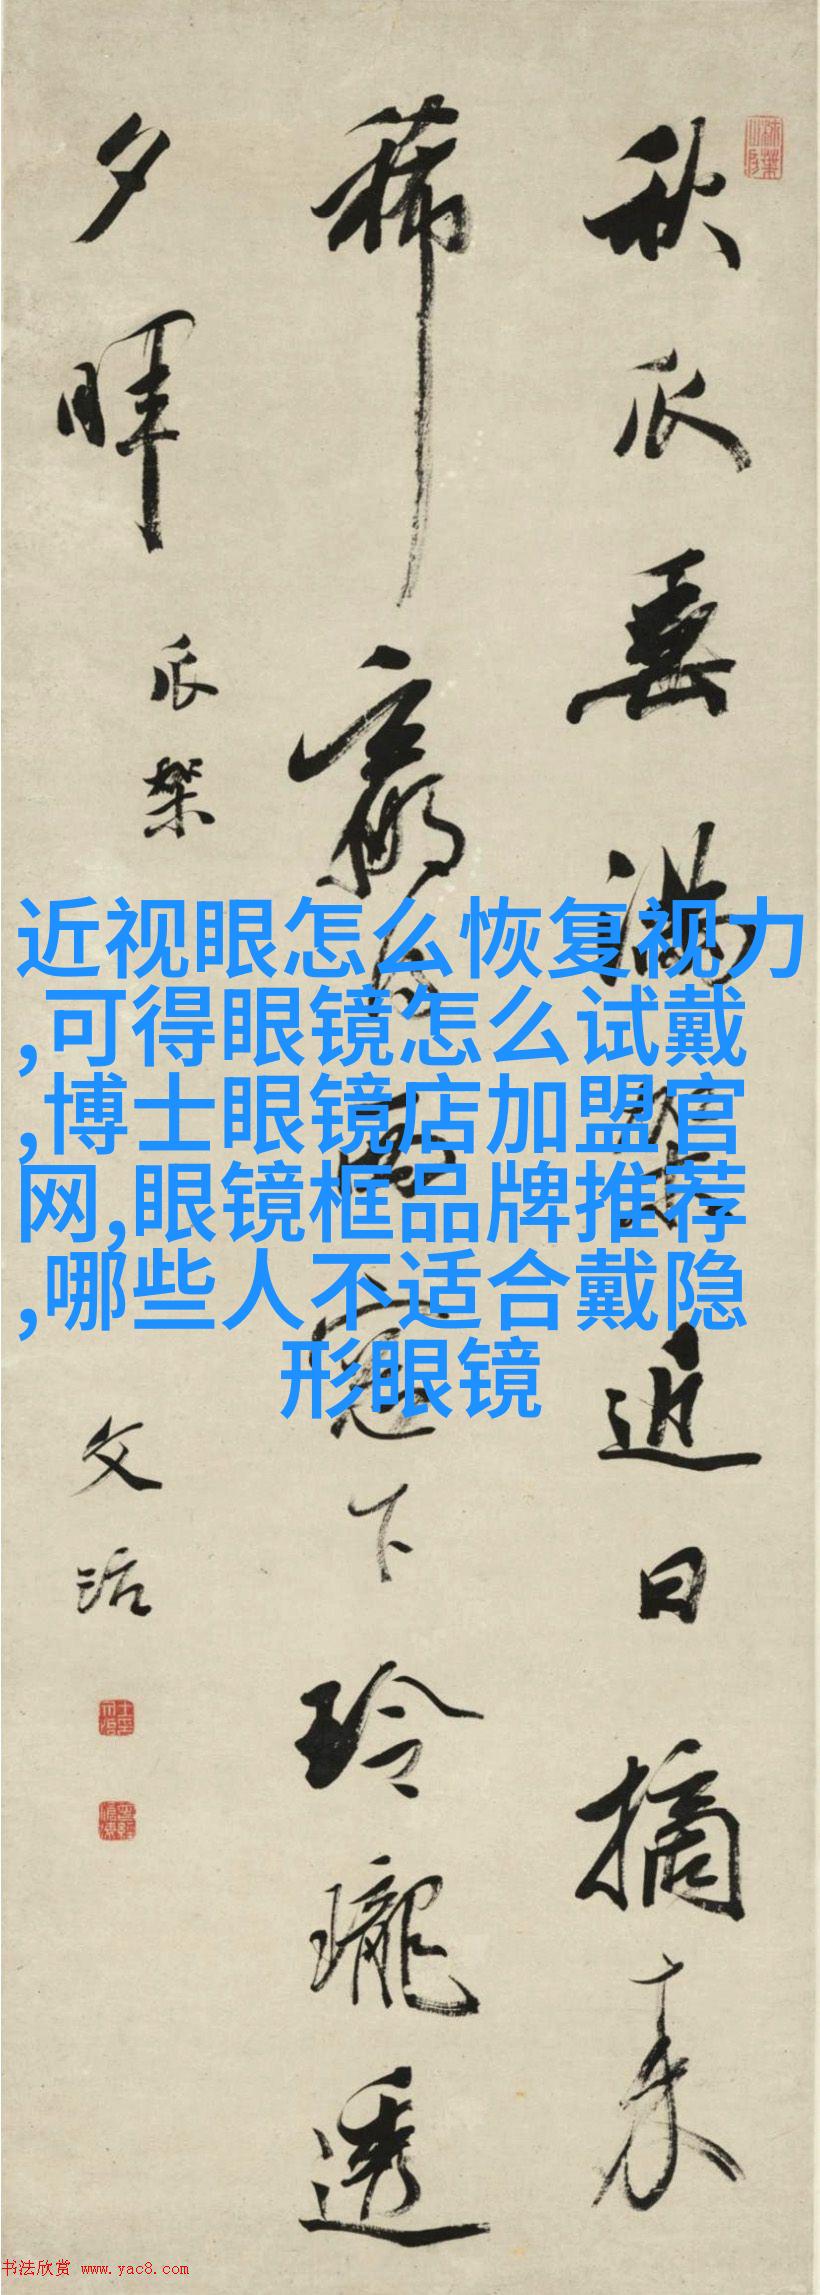 秋瓜垂满架近日摘来
稀赢得西窗下玲瓏透
夕暉
瓜架
文治
近视眼怎么恢复视力
,可得眼镜怎么试戴
,博士眼镜店加盟官
网,眼镜框品牌推荐
,哪些人不适合戴隐
形眼镜
书法欣赏 www.yac8.com